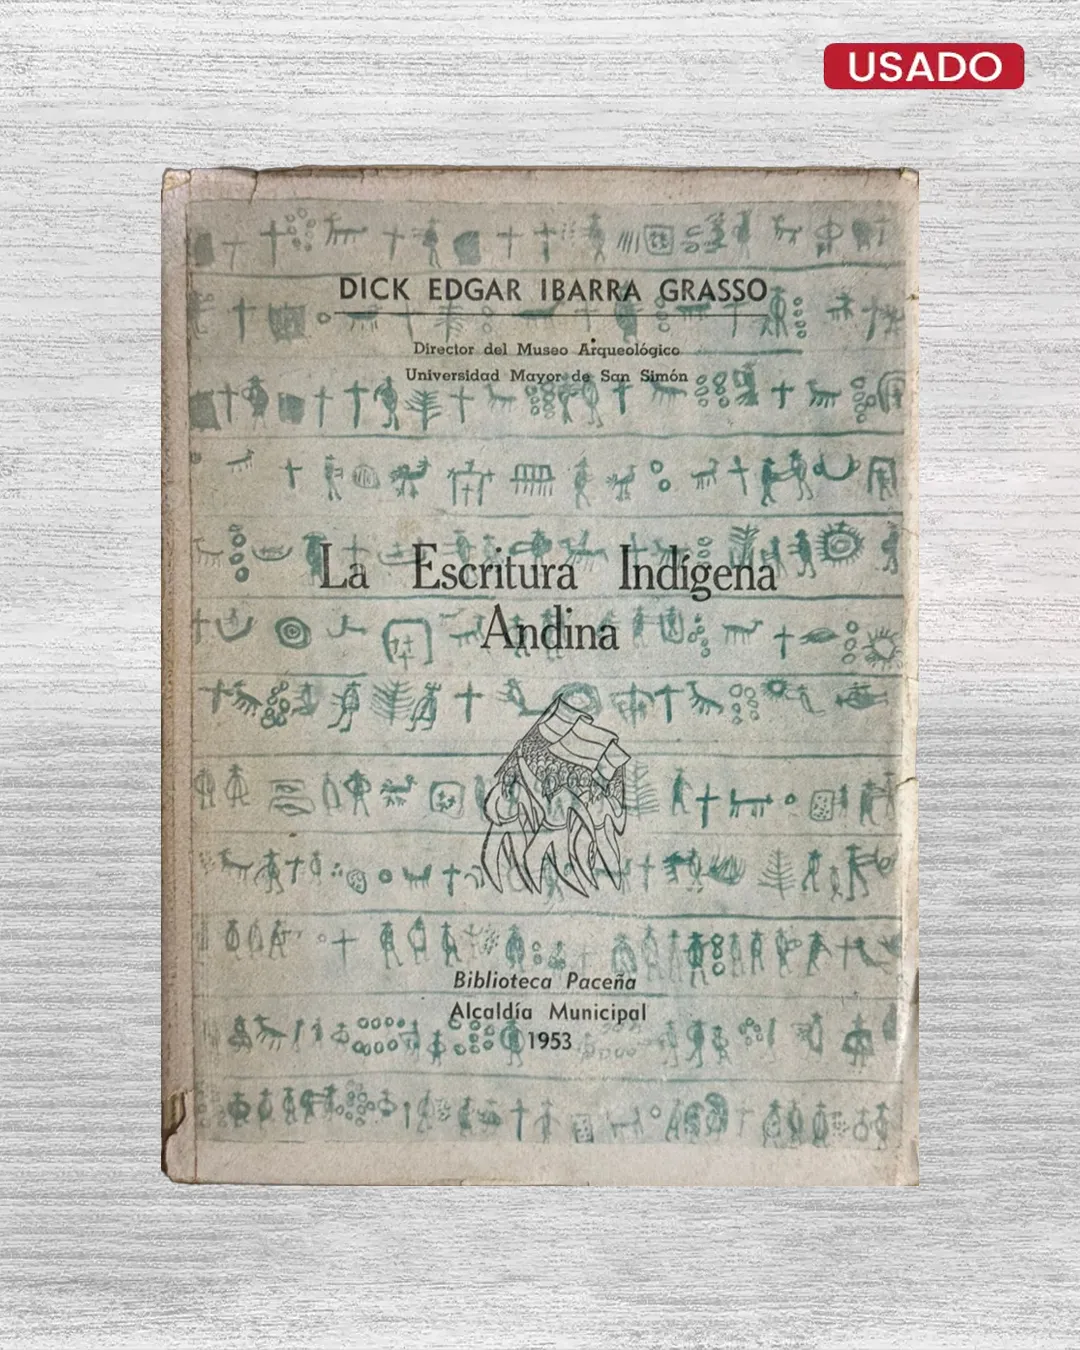 USADO
DICK EDGAR IBARRA GRASSO
Director del Museo Arqueológico
Universidad Mayor de San Simón
La Escritura Indígena
Andina
Biblioteca Paceña
Alcaldía Municipal
1953